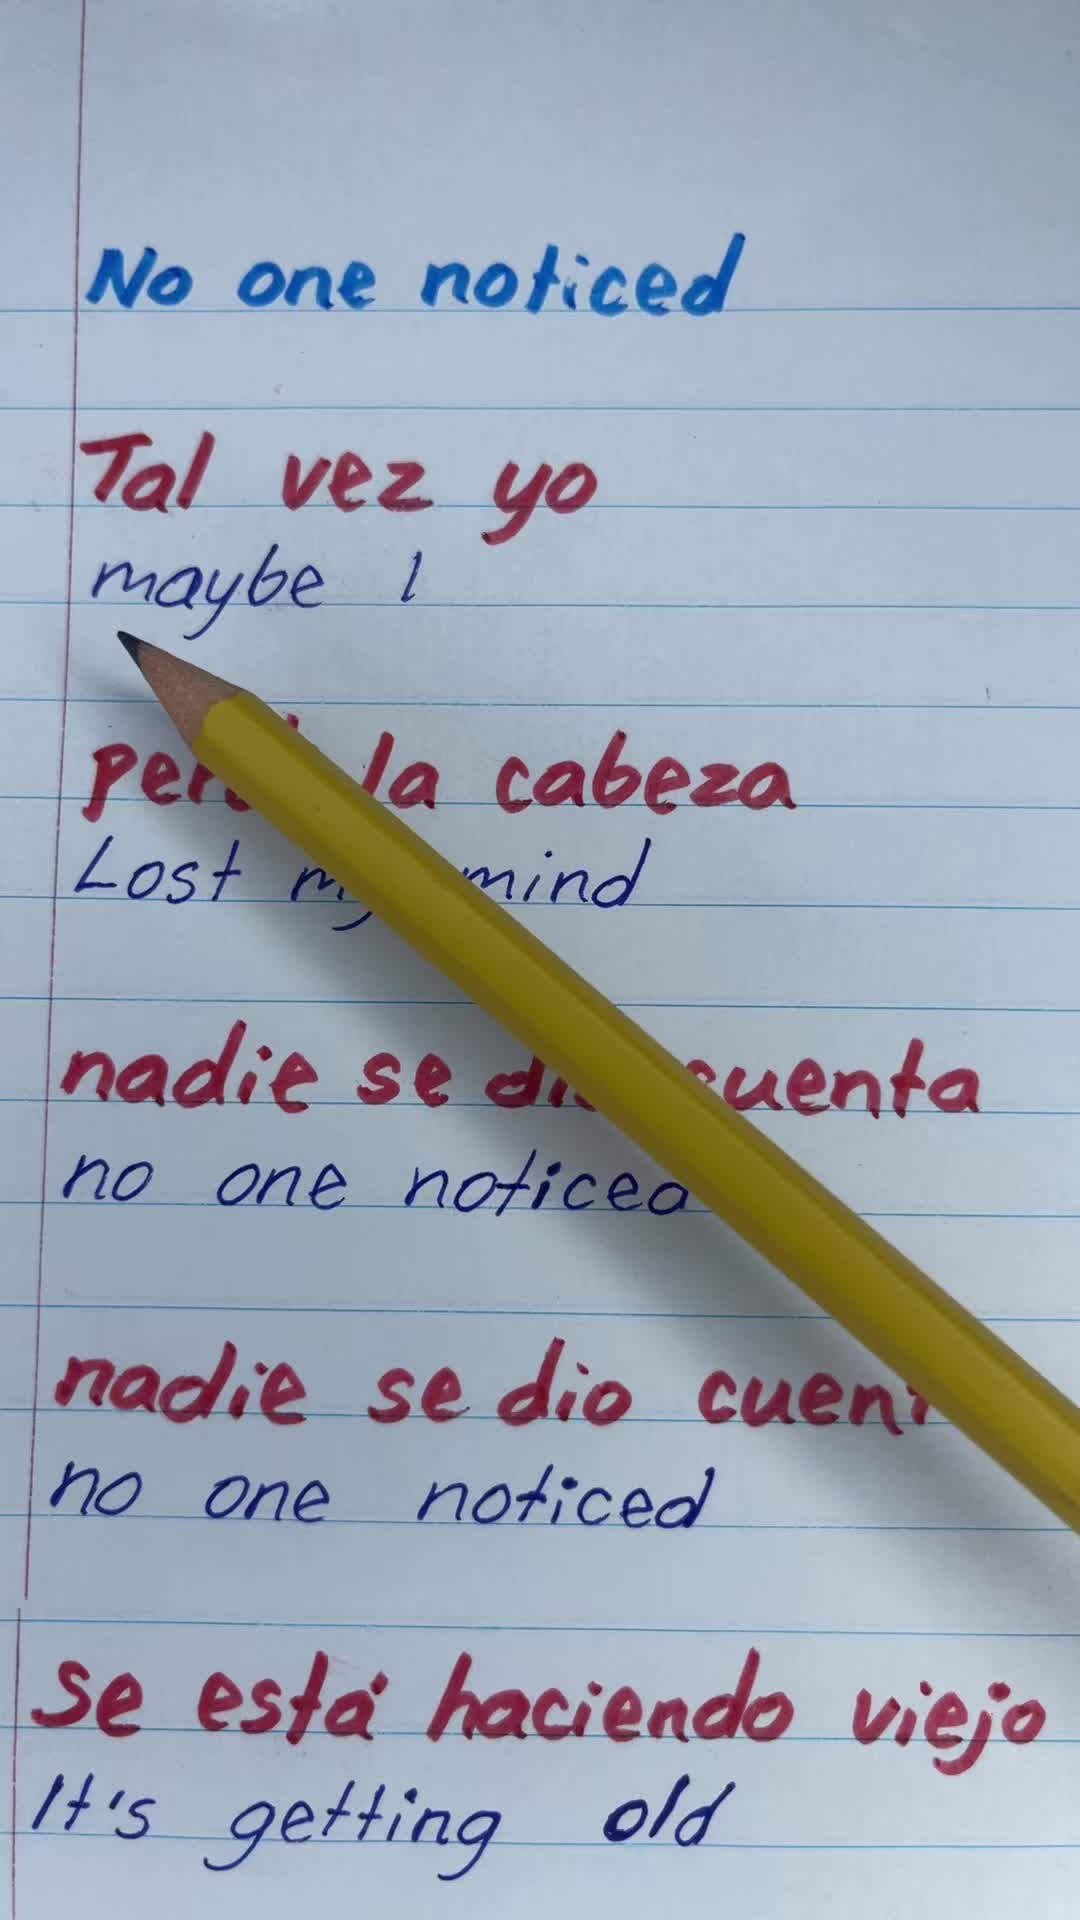 No one noticed
Tal vez yo
maybe I
la cabeza
Lost my mind
nadie se dio cuenta
no one noticed
nadie se dio
no one noticed
se está haciendo viejo
It's getting old